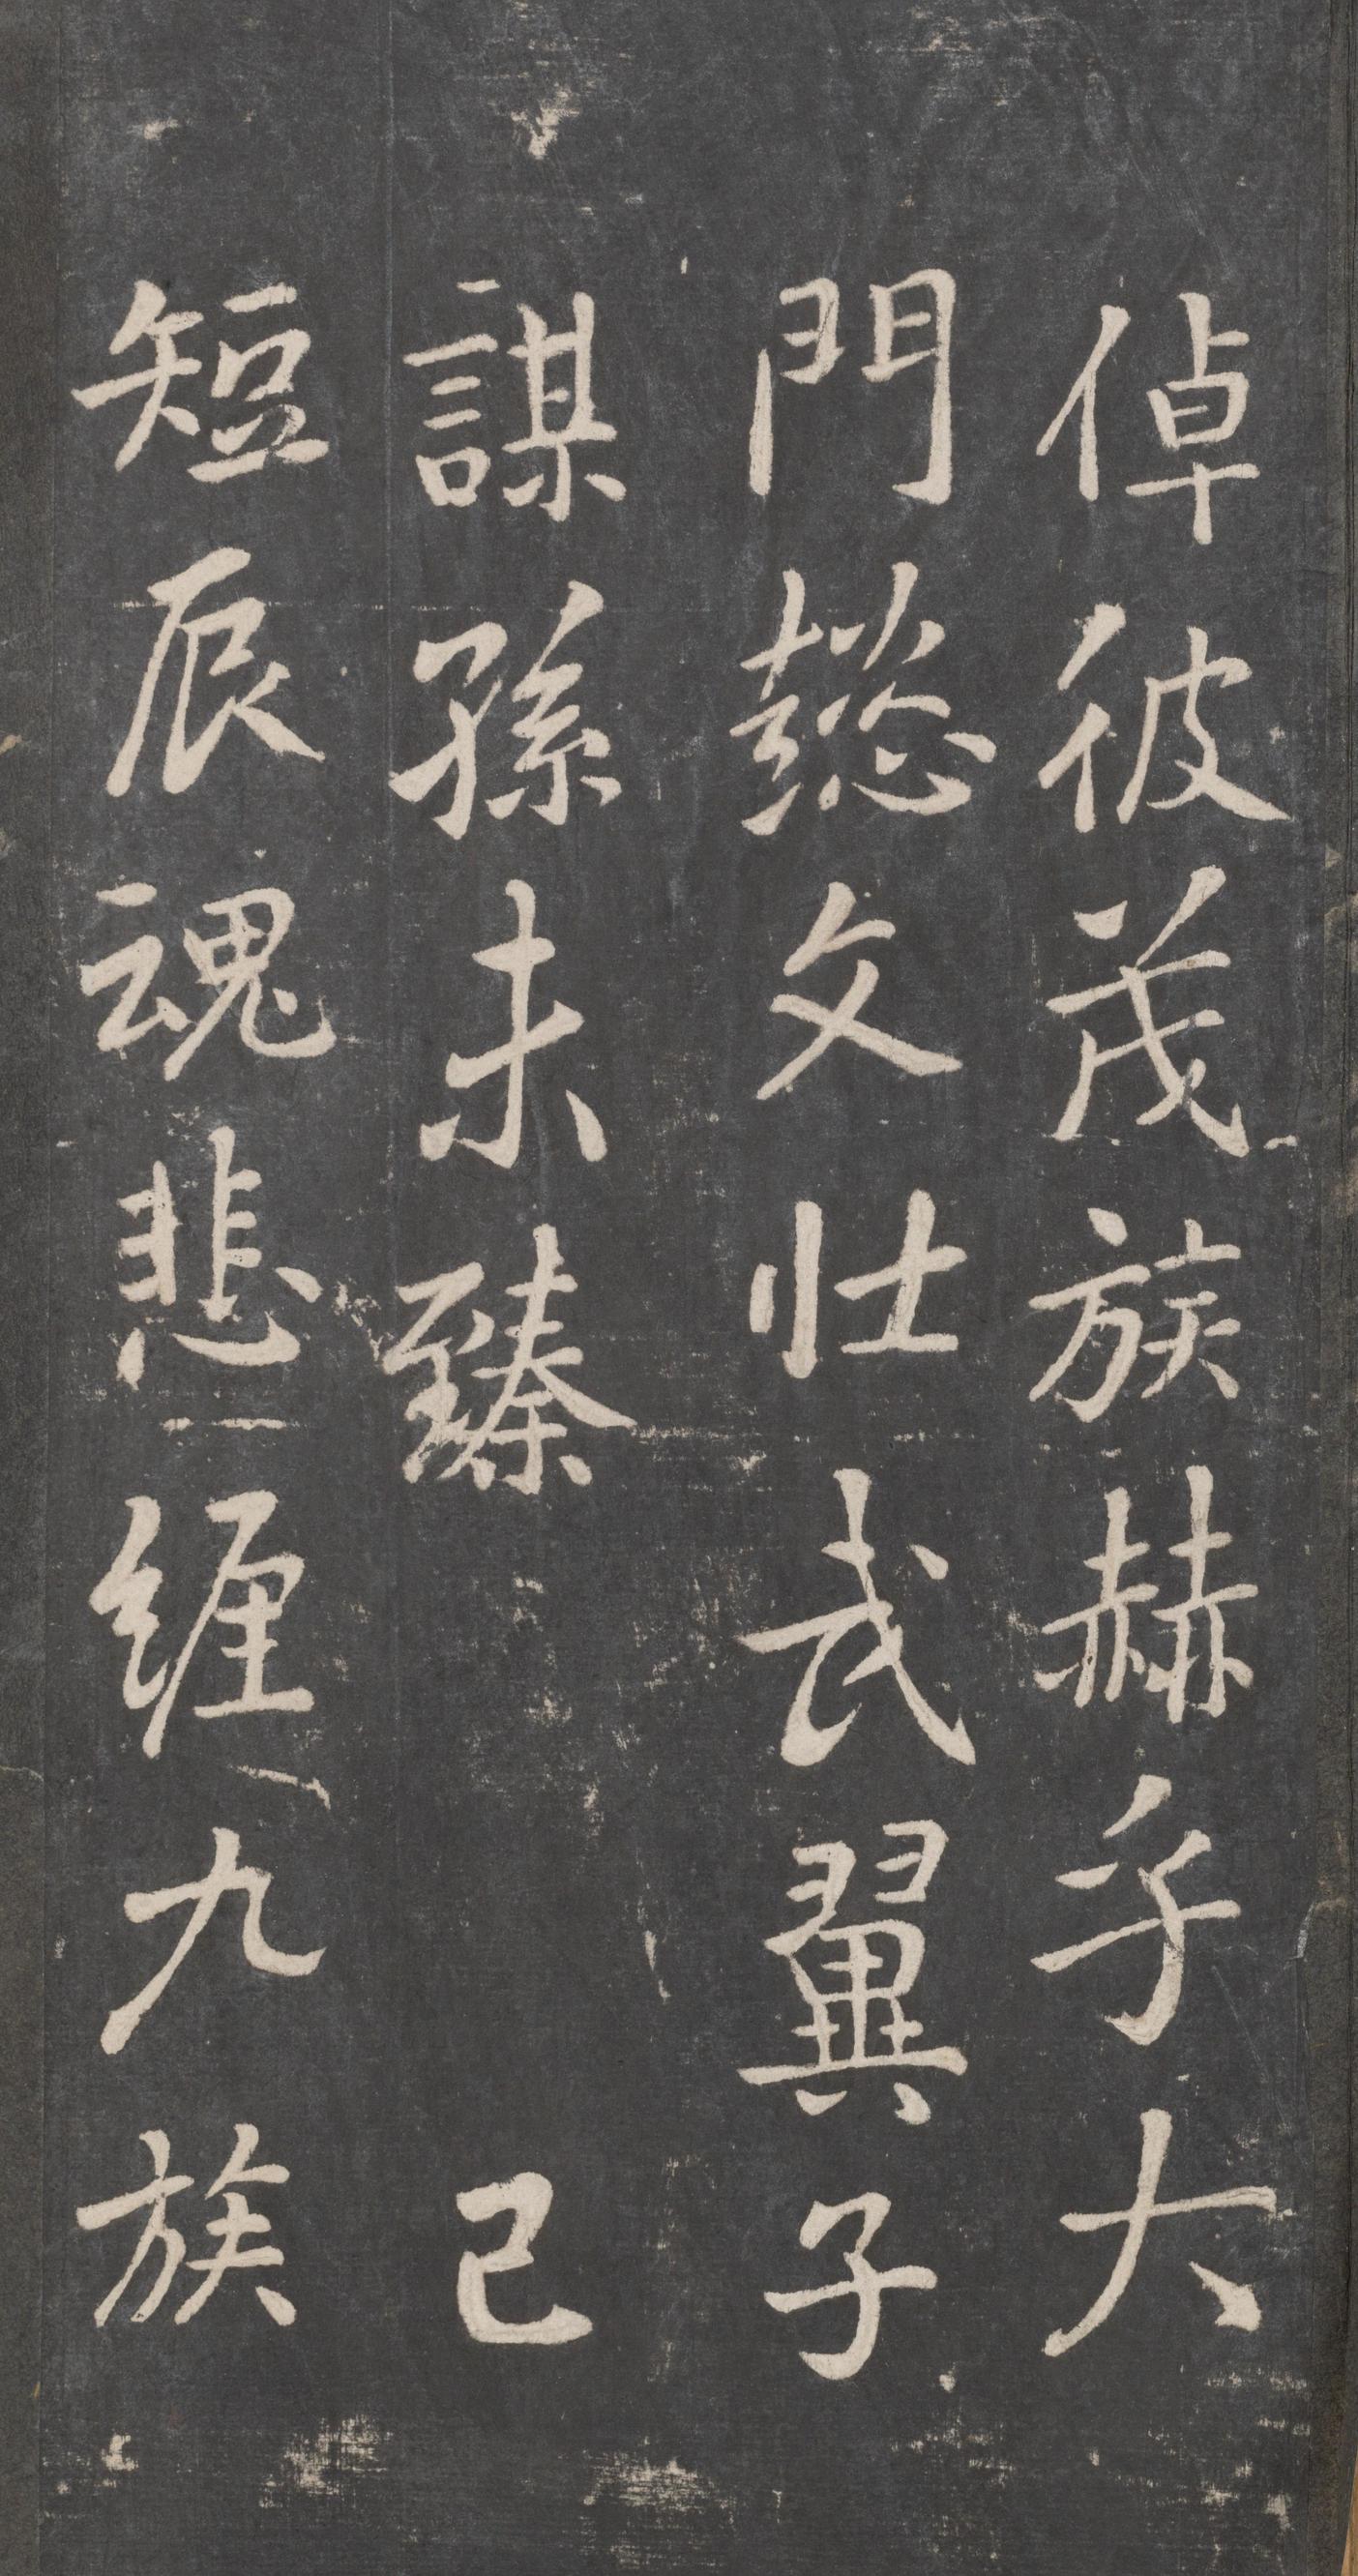 倬彼茂族赫乎大
門懿文壮武翼子
謀孫未臻 已
短辰魂悲纏九族